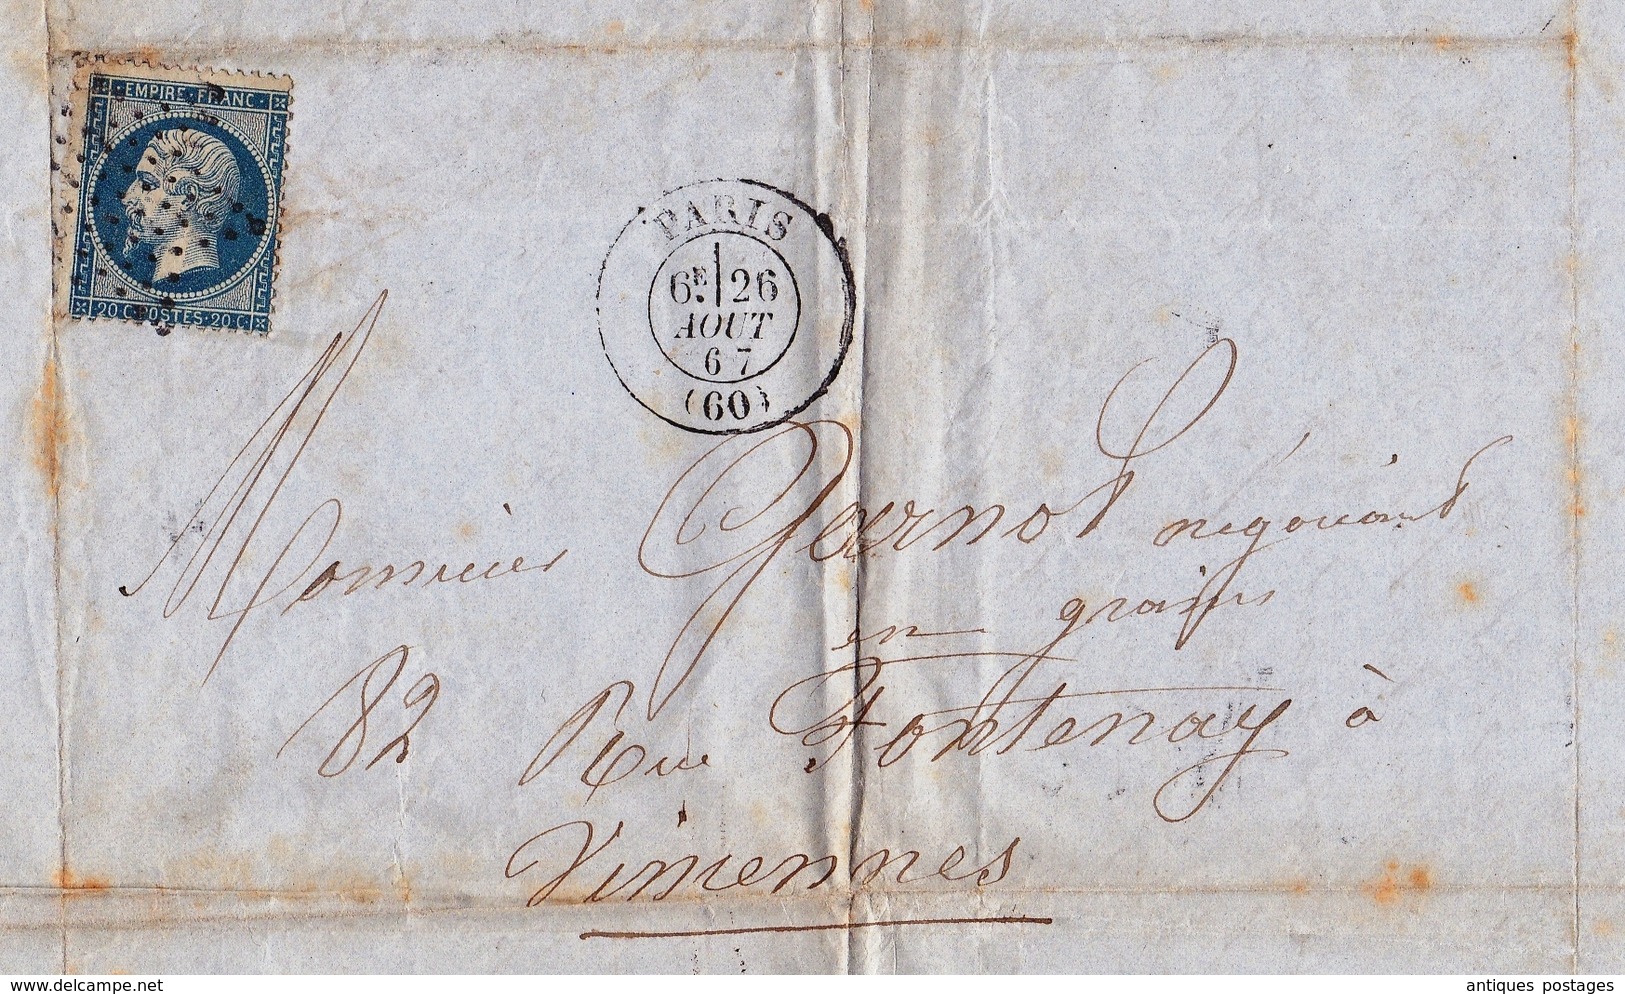 EMPIRE·FRANC·
20 C·POSTES·20 C·
PARIS
6E 26
AOUT
67
(60)
Monsieur Garnot négociant
en grains
82 Rue Fontenay à
Vincennes
delcampe.net
antiques postages